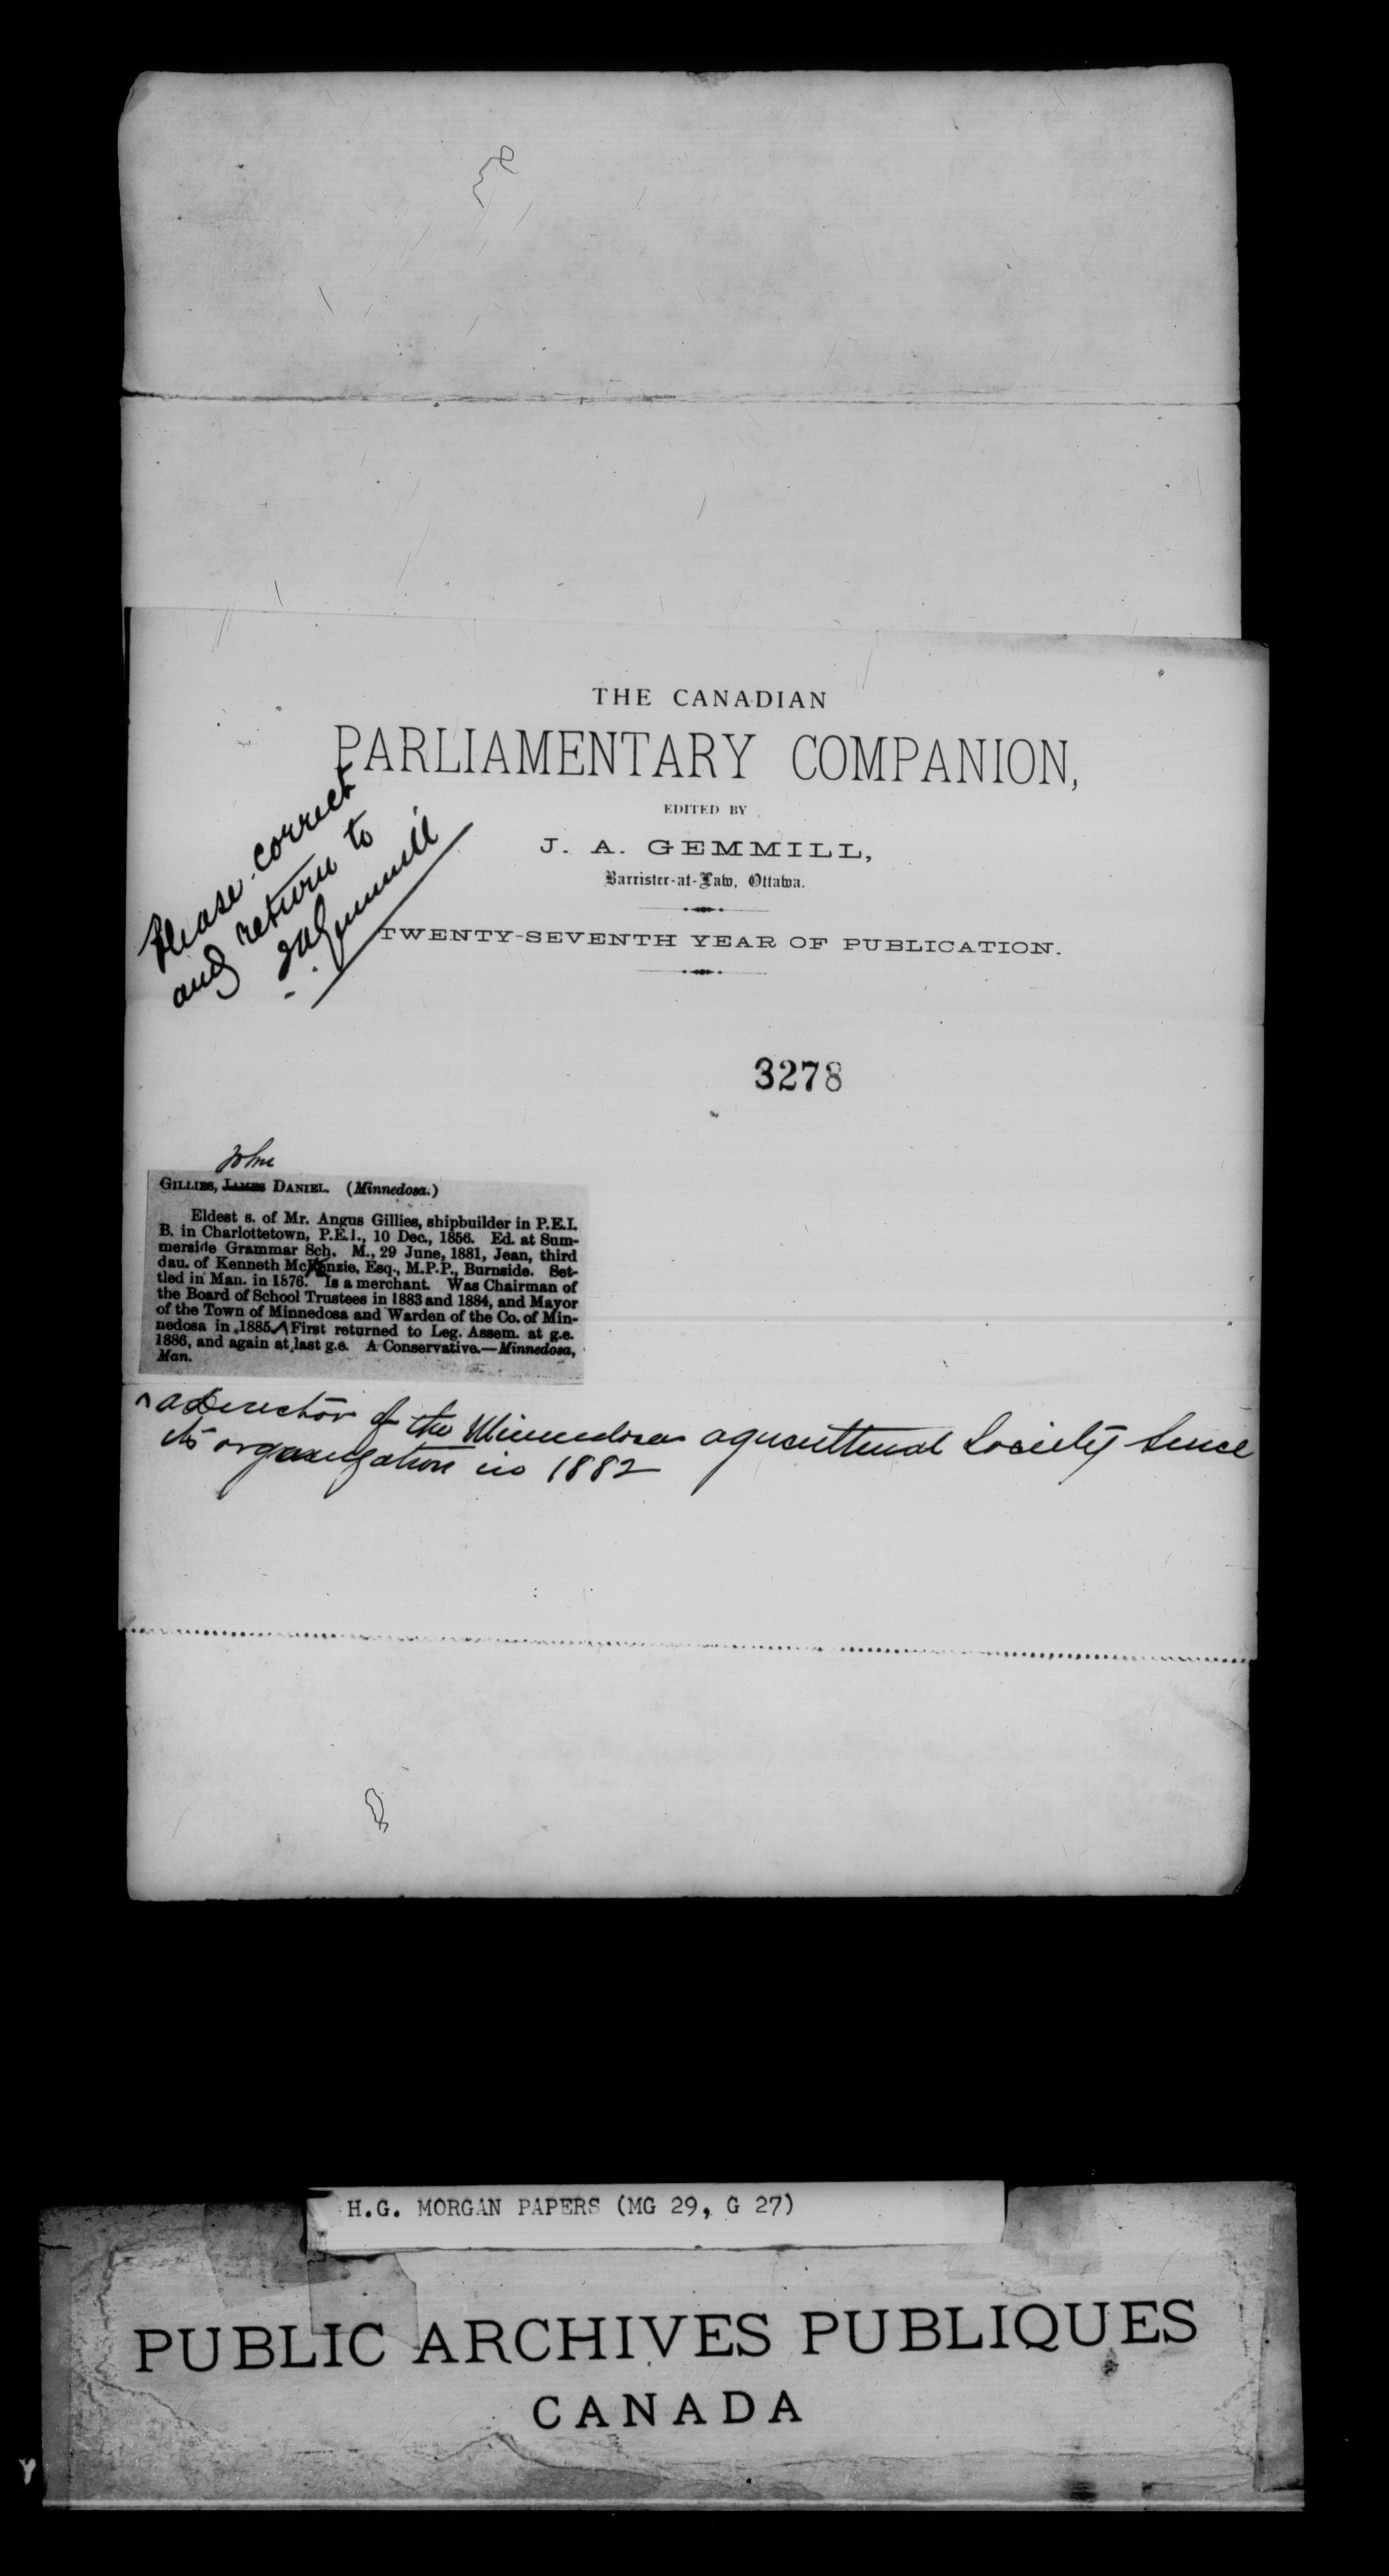 THE CANADIAN
PARLIAMENTARY COMPANION,
EDITED BY
J. A. GEMMILL,
Barrister-at-Law, Ottawa.
TWENTY-SEVENTH YEAR OF PUBLICATION.
Please correct
and return to
JAGemmill
3278
John
GILLIES, JAMES DANIEL. (Minnedosa.)
Eldest s. of Mr. Angus Gillies, shipbuilder in P.E.I.
B. in Charlottetown, P.E.I., 10 Dec., 1856. Ed. at Sum-
merside Grammar Sch. M., 29 June, 1881, Jean, third
dau. of Kenneth McKenzie, Esq., M.P.P., Burnside. Set-
tled in Man. in 1876. Is a merchant. Was Chairman of
the Board of School Trustees in 1883 and 1884, and Mayor
of the Town of Minnedosa and Warden of the Co. of Min-
nedosa in 1885. ^ First returned to Leg. Assem. at g.e.
1886, and again at last g.e. A Conservative.—Minnedosa,
Man.
^ a Director of the Minnedosa agricultural Society since
its organization in 1882
H.G. MORGAN PAPERS (MG 29, G 27)
PUBLIC ARCHIVES PUBLIQUES
CANADA